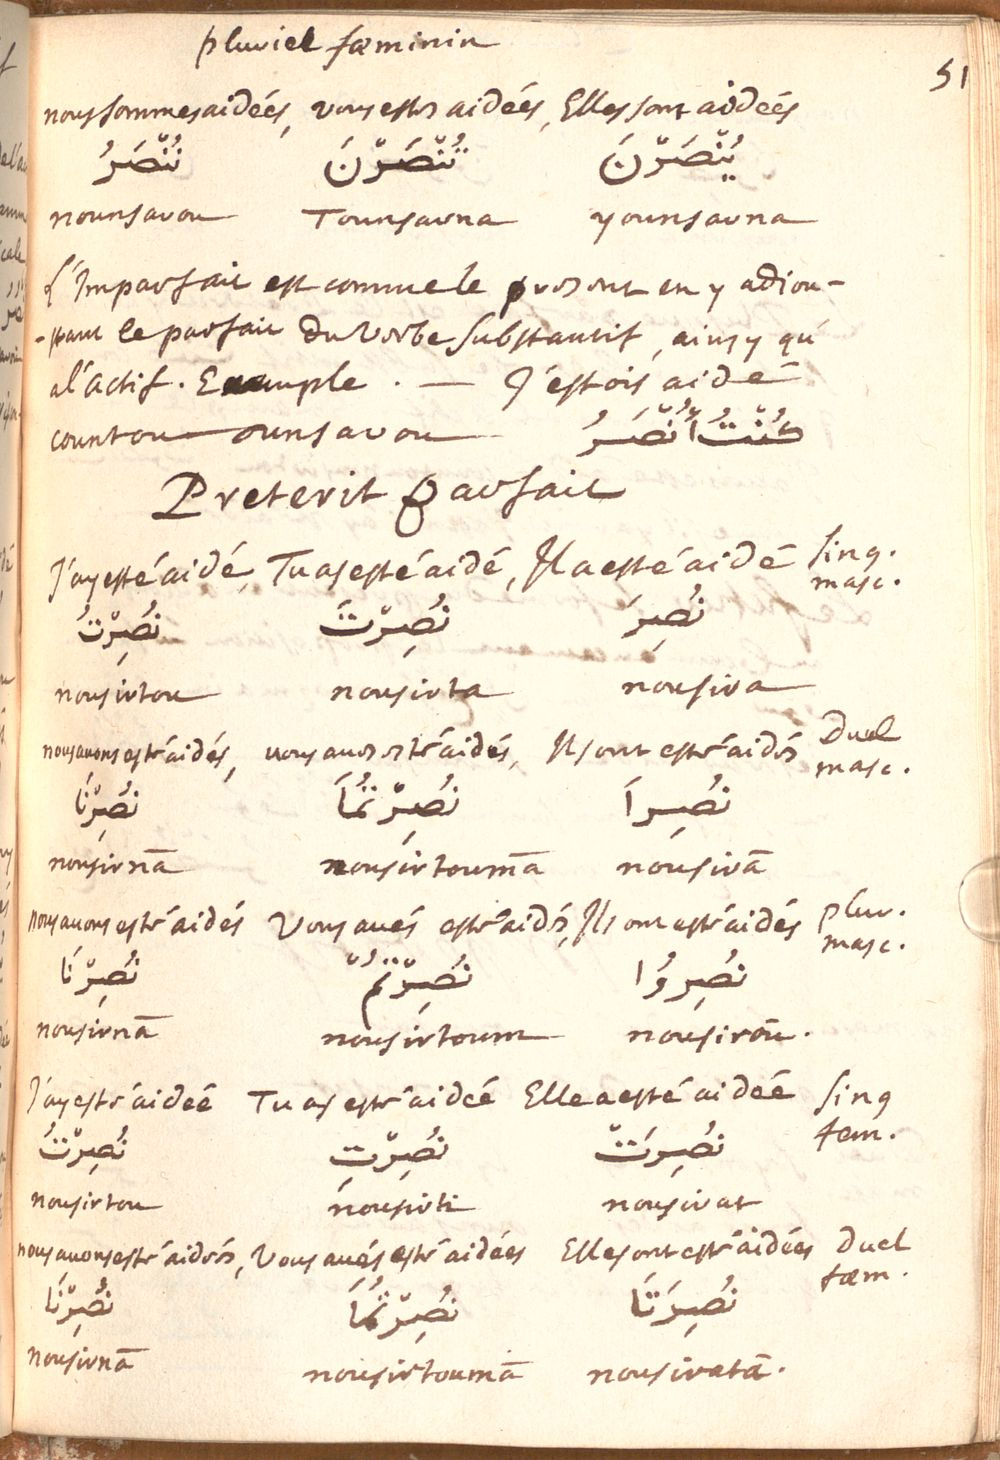 pluriel fœminin
51
nous sommes aidées, vous estes aidées, Elles sont aidées
نُنْصَرُ تُنْصَرْنَ يُنْصَرْنَ
nounsarou Tounsarna younsarna
L'Imparfait est comme le present en y adiou-
-stant le parfait du Verbe Substantif, ainsy qu'
a l'actif. Exemple. — J'estois aidé
countou ounsarou كُنْتُ أُنْصَرُ
Preterit Parfait
J'ay esté aidé, Tu as esté aidé, Il a esté aidé sing. masc.
نُصِرْتُ نُصِرْتَ نُصِرَ
nousirtou nousirta nousira
nous avons esté aidés, vous aves esté aidés, Ils ont esté aidés Duel masc.
نُصِرْنَا نُصِرْتُمَا نُصِرَا
nousirnā nousirtoumā nousirā
nous avons esté aidés Vous avés esté aidés, Ils ont esté aidés plur. masc.
نُصِرْنَا نُصِرْتُمْ نُصِرُوا
nousirnā nousirtoum nousirou.
J'ay esté aideé Tu as esté aideé Elle a esté aideé sing fem.
نُصِرْتُ نُصِرْتِ نُصِرَتْ
nousirtou nousirti nousirat
nous avons esté aidées, Vous avés esté aidées Elles ont esté aidées Duel fœm.
نُصِرْنَا نُصِرْتُمَا نُصِرَتَا
nousirnā nousirtoumā nousiratā.